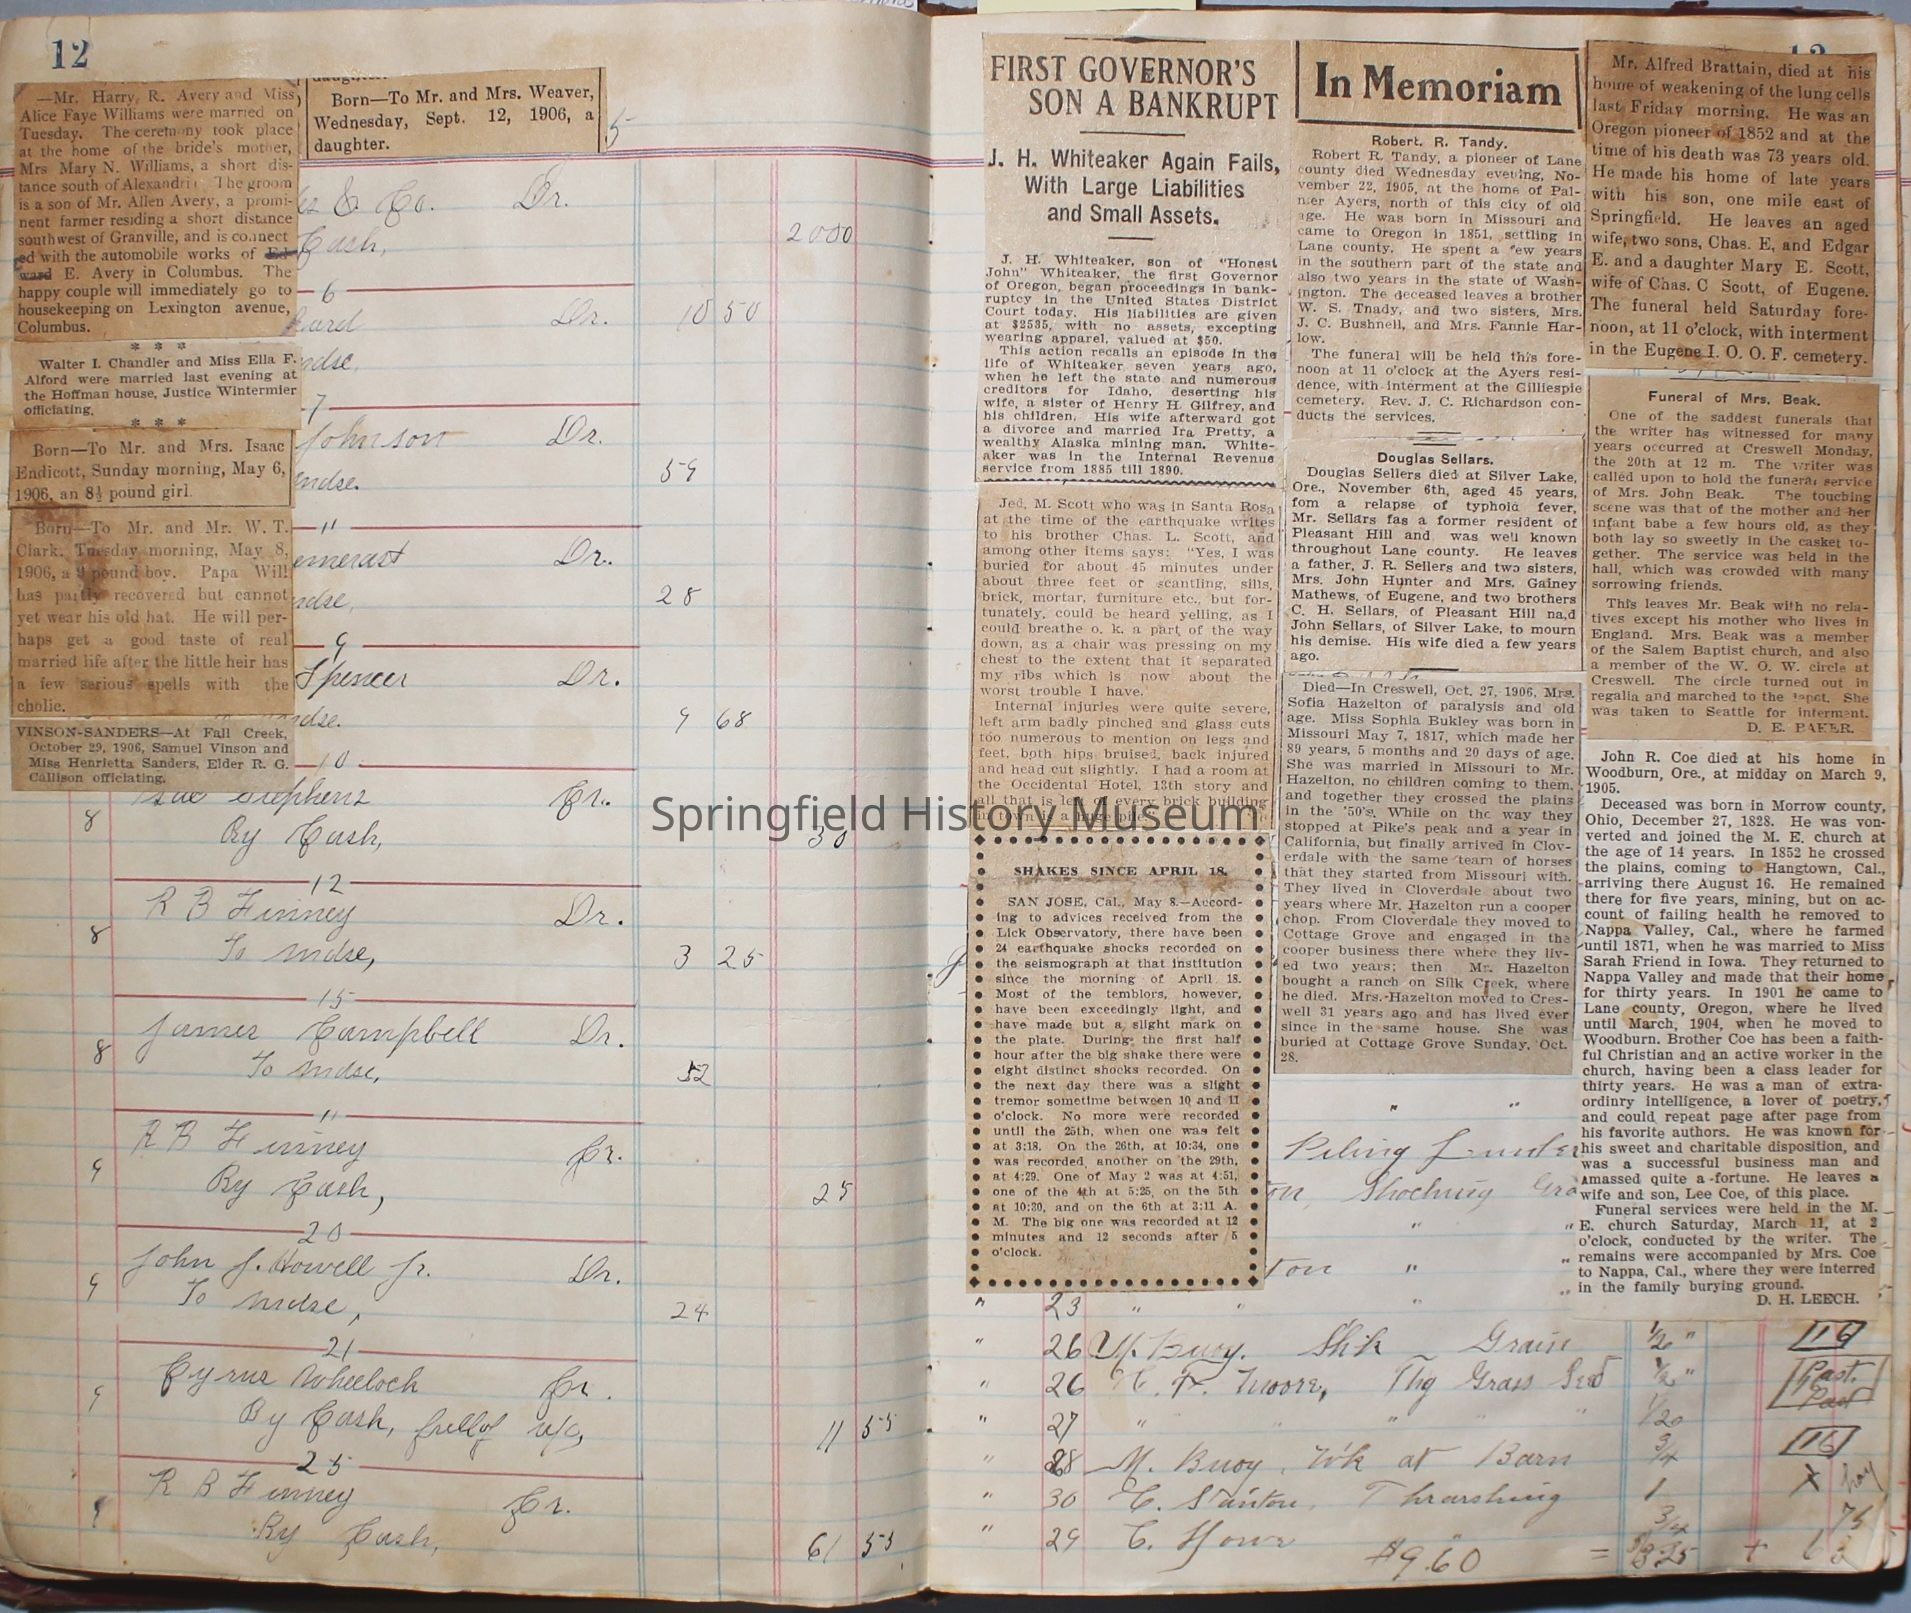 12
—Mr. Harry, R. Avery and Miss
Alice Faye Williams were married on
Tuesday. The ceremony took place
at the home of the bride's mother,
Mrs Mary N. Williams, a short dis-
tance south of Alexandri The groom
is a son of Mr. Allen Avery, a promi-
nent farmer residing a short distance
southwest of Granville, and is connect
ed with the automobile works of Ed-
ward E. Avery in Columbus. The
happy couple will immediately go to
housekeeping on Lexington avenue,
Columbus.
* * *
Walter I. Chandler and Miss Ella F.
Alford were married last evening at
the Hoffman house, Justice Wintermier
officiating.
* * *
Born—To Mr. and Mrs. Isaac
Endicott, Sunday morning, May 6,
1906, an 8½ pound girl.
Born—To Mr. and Mr. W. T.
Clark, Tuesday morning, May 8,
1906, a 9 pound boy. Papa Will
has partly recovered but cannot
yet wear his old hat. He will per-
haps get a good taste of real
married life after the little heir has
a few serious spells with the
cholic.
VINSON-SANDERS—At Fall Creek,
October 29, 1906, Samuel Vinson and
Miss Henrietta Sanders, Elder R. G.
Callison officiating.
daughter.
Born—To Mr. and Mrs. Weaver,
Wednesday, Sept. 12, 1906, a
daughter.
5
& Co. Dr.
Cash, 2000
6
Dr. 10 50
mdse,
7
Johnson Dr.
mdse. 59
11
Dr.
mdse, 28
9
Spencer Dr.
mdse. 9 68
10
Stephens Cr.
8 By Cash, 30
12
R B Finney Dr.
8 To mdse, 3 25
15
James Campbell Dr.
8 To mdse, 52
11
R B Finney Cr.
9 By Cash, 25
20
John J. Howell Jr. Dr.
9 To mdse, 24
21
Cyrus Wheelock Cr.
9 By Cash, full of a/c, 11 55
25
R B Finney Cr.
9 By Cash, 61 55
FIRST GOVERNOR'S
SON A BANKRUPT
J. H. Whiteaker Again Fails,
With Large Liabilities
and Small Assets.
J. H. Whiteaker, son of "Honest
John" Whiteaker, the first Governor
of Oregon, began proceedings in bank-
ruptcy in the United States District
Court today. His liabilities are given
at $2535, with no assets, excepting
wearing apparel, valued at $50.
This action recalls an episode in the
life of Whiteaker seven years ago,
when he left the state and numerous
creditors for Idaho, deserting his
wife, a sister of Henry H. Gilfrey, and
his children. His wife afterward got
a divorce and married Ira Pretty, a
wealthy Alaska mining man. White-
aker was in the Internal Revenue
service from 1885 till 1890.
Jed, M. Scott who was in Santa Rosa
at the time of the earthquake writes
to his brother Chas. L. Scott, and
among other items says: "Yes, I was
buried for about 45 minutes under
about three feet or scantling, sills,
brick, mortar, furniture etc., but for-
tunately, could be heard yelling, as I
could breathe o. k. a part of the way
down, as a chair was pressing on my
chest to the extent that it separated
my ribs which is now about the
worst trouble I have.
Internal injuries were quite severe,
left arm badly pinched and glass cuts
too numerous to mention on legs and
feet, both hips bruised, back injured
and head cut slightly. I had a room at
the Occidental Hotel, 13th story and
all that is left of every brick building
in town is a huge pile."
SHAKES SINCE APRIL 18.
SAN JOSE, Cal., May 8.—Accord-
ing to advices received from the
Lick Observatory, there have been
24 earthquake shocks recorded on
the seismograph at that institution
since the morning of April 18.
Most of the temblors, however,
have been exceedingly light, and
have made but a slight mark on
the plate. During the first half
hour after the big shake there were
eight distinct shocks recorded. On
the next day there was a slight
tremor sometime between 10 and 11
o'clock. No more were recorded
until the 25th, when one was felt
at 3:18. On the 26th, at 10:34, one
was recorded, another on the 29th,
at 4:29. One of May 2 was at 4:51,
one of the 4th at 5:25, on the 5th
at 10:30, and on the 6th at 3:11 A.
M. The big one was recorded at 12
minutes and 12 seconds after 5
o'clock.
In Memoriam
Robert. R. Tandy.
Robert R. Tandy, a pioneer of Lane
county died Wednesday evening, No-
vember 22, 1905, at the home of Pal-
mer Ayers, north of this city of old
age. He was born in Missouri and
came to Oregon in 1851, settling in
Lane county. He spent a few years
in the southern part of the state and
also two years in the state of Wash-
ington. The deceased leaves a brother
W. S. Tnady, and two sisters, Mrs.
J. C. Bushnell, and Mrs. Fannie Har-
low.
The funeral will be held this fore-
noon at 11 o'clock at the Ayers resi-
dence, with interment at the Gilliespie
cemetery. Rev. J. C. Richardson con-
ducts the services.
Douglas Sellars.
Douglas Sellers died at Silver Lake,
Ore., November 6th, aged 45 years,
fom a relapse of typhoid fever,
Mr. Sellars fas a former resident of
Pleasant Hill and was well known
throughout Lane county. He leaves
a father, J. R. Sellers and two sisters,
Mrs. John Hunter and Mrs. Gainey
Mathews, of Eugene, and two brothers
C. H. Sellars, of Pleasant Hill na,d
John Sellars, of Silver Lake, to mourn
his demise. His wife died a few years
ago.
Died—In Creswell, Oct. 27, 1906, Mrs.
Sofia Hazelton of paralysis and old
age. Miss Sophia Bukley was born in
Missouri May 7, 1817, which made her
89 years, 5 months and 20 days of age.
She was married in Missouri to Mr.
Hazelton, no children coming to them,
and together they crossed the plains
in the '50's. While on the way they
stopped at Pike's peak and a year in
California, but finally arrived in Clov-
erdale with the same team of horses
that they started from Missouri with.
They lived in Cloverdale about two
years where Mr. Hazelton run a cooper
chop. From Cloverdale they moved to
Cottage Grove and engaged in the
cooper business there where they liv-
ed two years; then Mr. Hazelton
bought a ranch on Silk Creek, where
he died. Mrs. Hazelton moved to Cres-
well 31 years ago and has lived ever
since in the same house. She was
buried at Cottage Grove Sunday, Oct.
28.
Mr. Alfred Brattain, died at his
home of weakening of the lung cells
last Friday morning. He was an
Oregon pioneer of 1852 and at the
time of his death was 73 years old.
He made his home of late years
with his son, one mile east of
Springfield. He leaves an aged
wife, two sons, Chas. E, and Edgar
E. and a daughter Mary E. Scott,
wife of Chas. C Scott, of Eugene.
The funeral held Saturday fore-
noon, at 11 o'clock, with interment
in the Eugene I. O. O. F. cemetery.
Funeral of Mrs. Beak.
One of the saddest funerals that
the writer has witnessed for many
years occurred at Creswell Monday,
the 20th at 12 m. The writer was
called upon to hold the funeral service
of Mrs. John Beak. The touching
scene was that of the mother and her
infant babe a few hours old, as they
both lay so sweetly in the casket to-
gether. The service was held in the
hall, which was crowded with many
sorrowing friends.
This leaves Mr. Beak with no rela-
tives except his mother who lives in
England. Mrs. Beak was a member
of the Salem Baptist church, and also
a member of the W. O. W. circle at
Creswell. The circle turned out in
regalia and marched to the depot. She
was taken to Seattle for interment.
D. E. BAKER.
John R. Coe died at his home in
Woodburn, Ore., at midday on March 9,
1905.
Deceased was born in Morrow county,
Ohio, December 27, 1828. He was von-
verted and joined the M. E. church at
the age of 14 years. In 1852 he crossed
the plains, coming to Hangtown, Cal.,
arriving there August 16. He remained
there for five years, mining, but on ac-
count of failing health he removed to
Nappa Valley, Cal., where he farmed
until 1871, when he was married to Miss
Sarah Friend in Iowa. They returned to
Nappa Valley and made that their home
for thirty years. In 1901 he came to
Lane county, Oregon, where he lived
until March, 1904, when he moved to
Woodburn. Brother Coe has been a faith-
ful Christian and an active worker in the
church, having been a class leader for
thirty years. He was a man of extra-
ordinry intelligence, a lover of poetry,
and could repeat page after page from
his favorite authors. He was known for
his sweet and charitable disposition, and
was a successful business man and
amassed quite a fortune. He leaves a
wife and son, Lee Coe, of this place.
Funeral services were held in the M.
E. church Saturday, March 11, at 2
o'clock, conducted by the writer. The
remains were accompanied by Mrs. Coe
to Nappa, Cal., where they were interred
in the family burying ground.
D. H. LEECH.
" "
Piling
Shocking
" 23 " " "
" 26 M. Buoy. Grain ½ "
" 26 Moore, Thg Grass Seed ½ "
" 27 " " " " 1/20
" 28 M. Buoy, Wk at Barn 3/4
" 30 C. Stanton, Thrashing 1
" 29 C. Howe 3/4 75
$9.60 =
Springfield History Museum